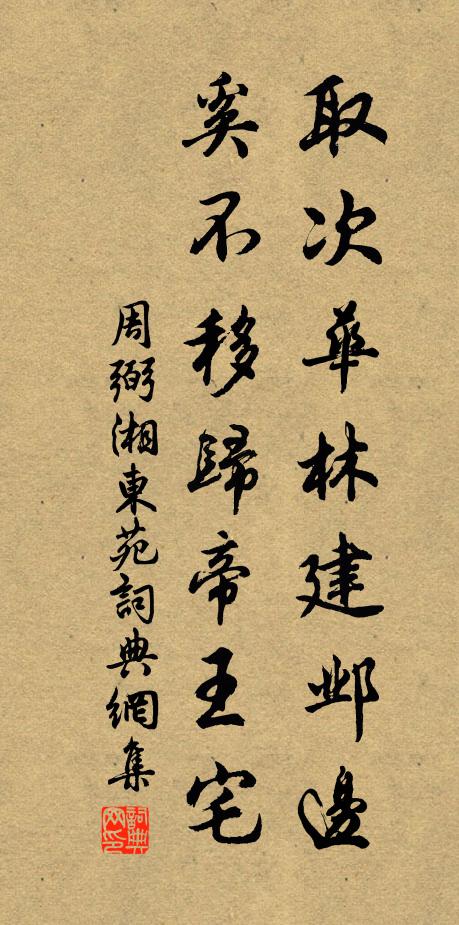 取次華林建邺邊
奚不移歸帝王宅
周弼湘東苑詞典網集
詞典网印